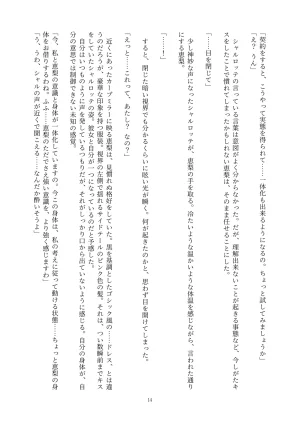 「契約をすると、こうやって実態を得られて……一体化も出来るようになるの。ちょっと試してみましょうか」
「え？うん」
　シャルロッテの言っている言葉は意図がよく分からなかった。だが、理解出来ないことが起きる事態など、今しがたキ
スをしたことで慣れてしまったかもしれない恵梨は、そのまま任せることにした。
「……目を閉じて」
　少し神妙な声になったシャルロッテが、恵梨の手を取る。冷たいような温かいような体温を感じながら、言われた通り
にする恵梨。
「……！」
　すると、閉じた暗い視界でも分かるくらいに眩い光が瞬く。何が起きたのかと、思わず目を開けてしまった。
「えっと……これって、あたし？　なの？」
　カーブミラーに映る恵梨は、見慣れぬ格好をしていた。黒を基調としたゴシック風の……ドレス、とは違
うなんだか可愛い印象を持つ服装、視界の左側で揺れるサイドテールのピンク色の髪。それは、つい数瞬前までキス
をしていたシャルロッテの姿、彼女と自分が一つになっているのだと予感した。
　声も、自分が喋っているつもりだが、それがしっかり口から出ていないように感じる。自分の身体が、自
分の意思では制御できない未知の感覚。
「今、私と恵梨の意識と身体が一体化していますの。今この身体は、私の考えに従って動ける状態……ちょっと恵梨の身
体をお借りするわね。ふふ……恵梨のただでさえ強い意識を、より強く感じますわ」
「う、うわ、シャルの声が近くで聞こえる……なんだか酔いそうよ」
14